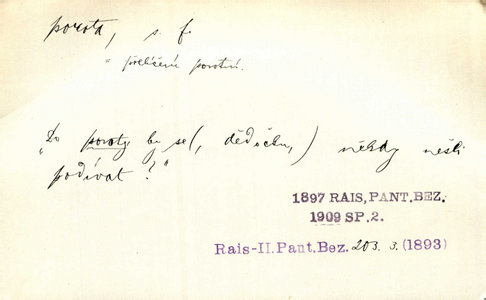 porota, s. f.
" přelíčení porotní.
„Do poroty by se (, dědečku,) někdy nešli
podívat?"
1897 RAIS, PANT. BEZ.
1909 SP. 2.
Rais-II. Pant. Bez. 203. 3. (1893)